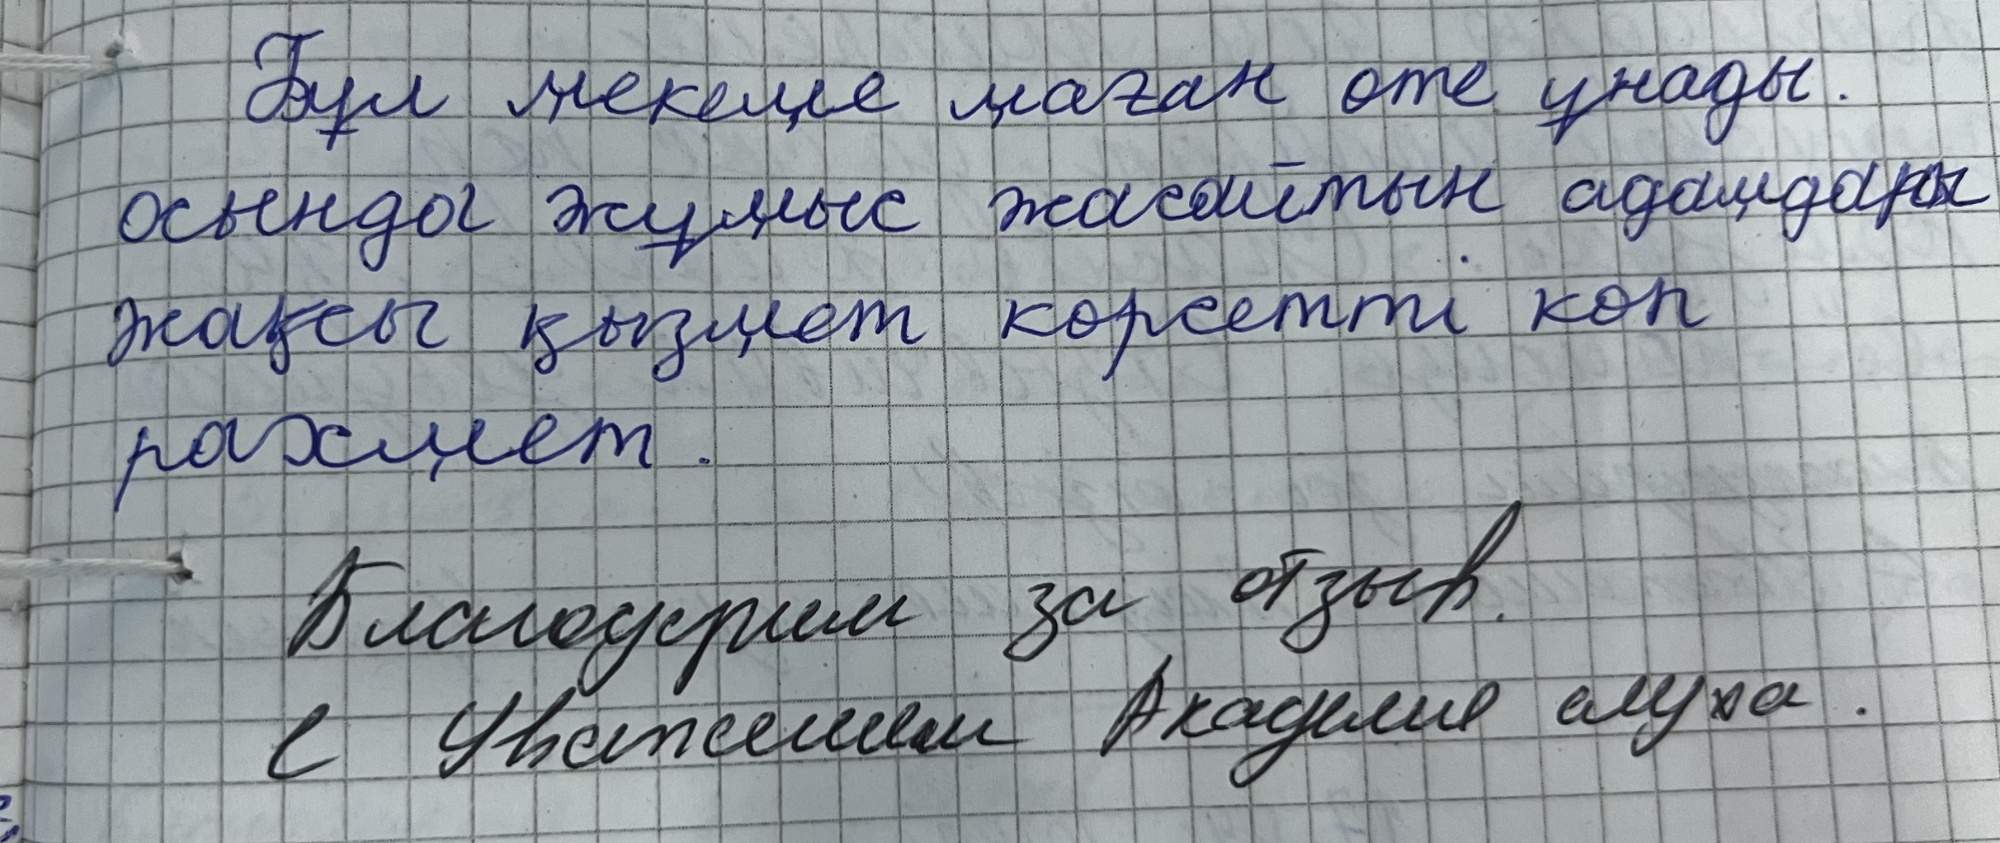 Бұл мекеме маған оте ұнады.
осында жұмыс жасайтын адамдары
жақсы қызмет көрсетті көп
рахмет.
Благодарим за отзыв.
с Уважением Академия слуха.